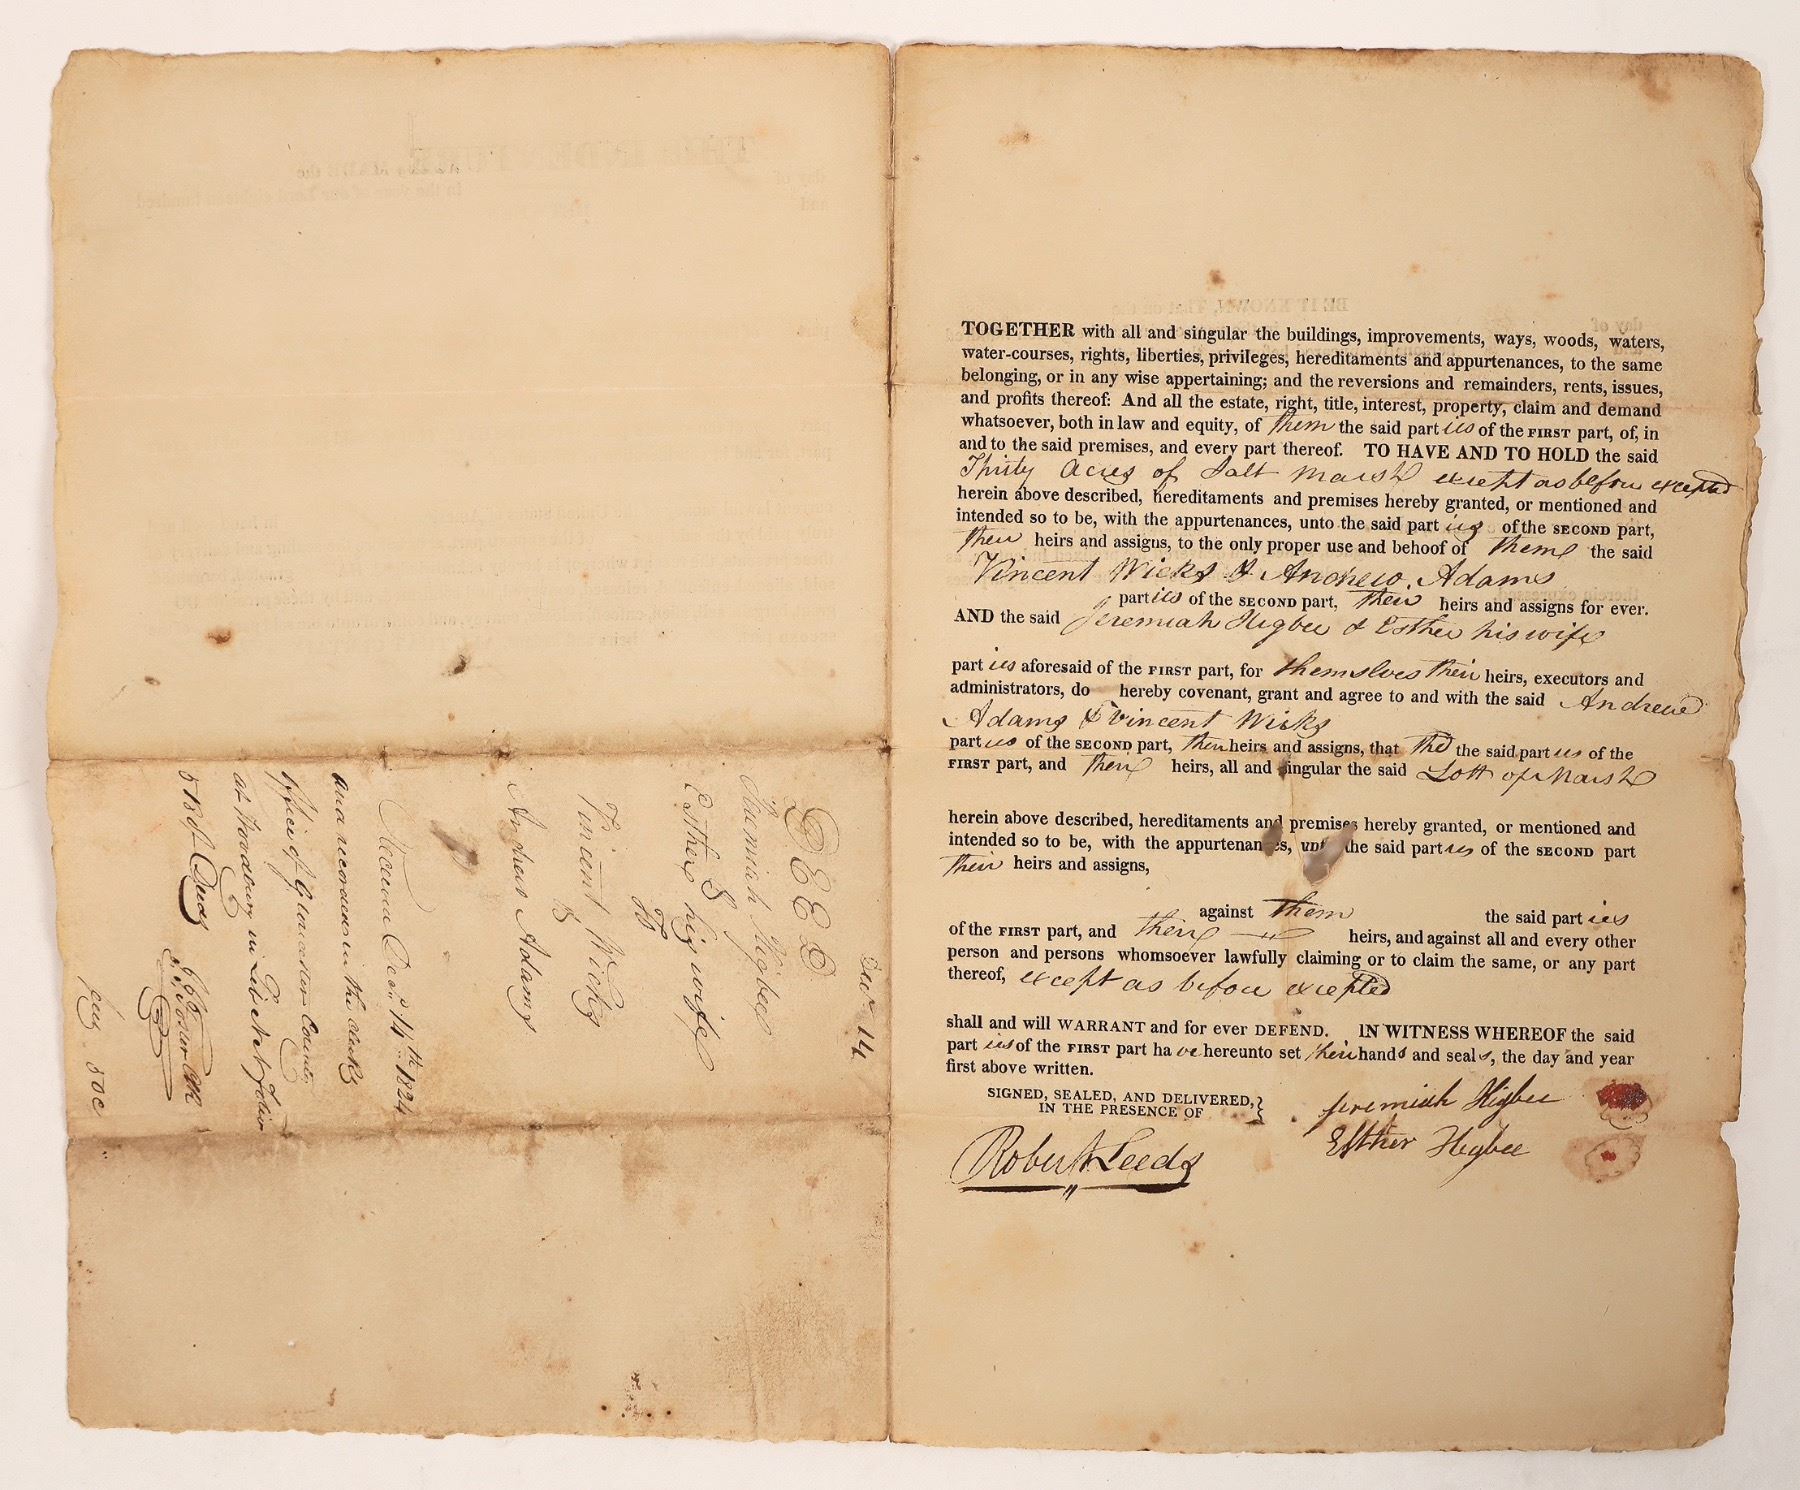 TOGETHER with all and singular the buildings, improvements, ways, woods, waters,
water-courses, rights, liberties, privileges, hereditaments and appurtenances, to the same
belonging, or in any wise appertaining; and the reversions and remainders, rents, issues,
and profits thereof: And all the estate, right, title, interest, property, claim and demand
whatsoever, both in law and equity, of them the said parties of the FIRST part, of, in
and to the said premises, and every part thereof. TO HAVE AND TO HOLD the said
Thirty Acres of Salt Marsh except as before excepted
herein above described, hereditaments and premises hereby granted, or mentioned and
intended so to be, with the appurtenances, unto the said parties of the SECOND part,
their heirs and assigns, to the only proper use and behoof of them the said
Vincent Wicks & Andrew Adams
parties of the SECOND part, their heirs and assigns for ever.
AND the said Jeremiah Higbee & Esther his wife
parties aforesaid of the FIRST part, for themslves their heirs, executors and
administrators, do hereby covenant, grant and agree to and with the said Andrew
Adams & Vincent Wicks
parties of the SECOND part, their heirs and assigns, that the the said parties of the
FIRST part, and their heirs, all and singular the said Lott of Marsh
herein above described, hereditaments and premises hereby granted, or mentioned and
intended so to be, with the appurtenances, unto the said parties of the SECOND part
their heirs and assigns,
against them the said parties
of the FIRST part, and their heirs, and against all and every other
person and persons whomsoever lawfully claiming or to claim the same, or any part
thereof, except as before excepted
shall and will WARRANT and for ever DEFEND. IN WITNESS WHEREOF the said
parties of the FIRST part have hereunto set their hands and seals, the day and year
first above written.
SIGNED, SEALED, AND DELIVERED,
IN THE PRESENCE OF
Robert Leeds
Jeremiah Higbee
Esther Higbee
Decr 14
DEED
Jeremiah Higbee
& Esther his wife
To
Vincent Wicks
&
Andrew Adams
Received Decr. 14th 1824
and recorded in the clerks
office of Gloucester County
at Woodbury in Lib
of Deeds
fees 80c